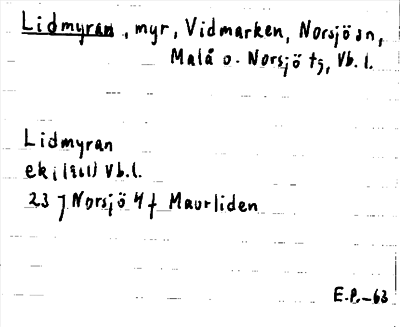 Lidmyran, myr, Vidmarken, Norsjö sn,
Malå o. Norsjö tg, Vb. l.
Lidmyran
ek (1961) Vb.l.
23 J Norsjö 4 f Maurliden
E.P.-63